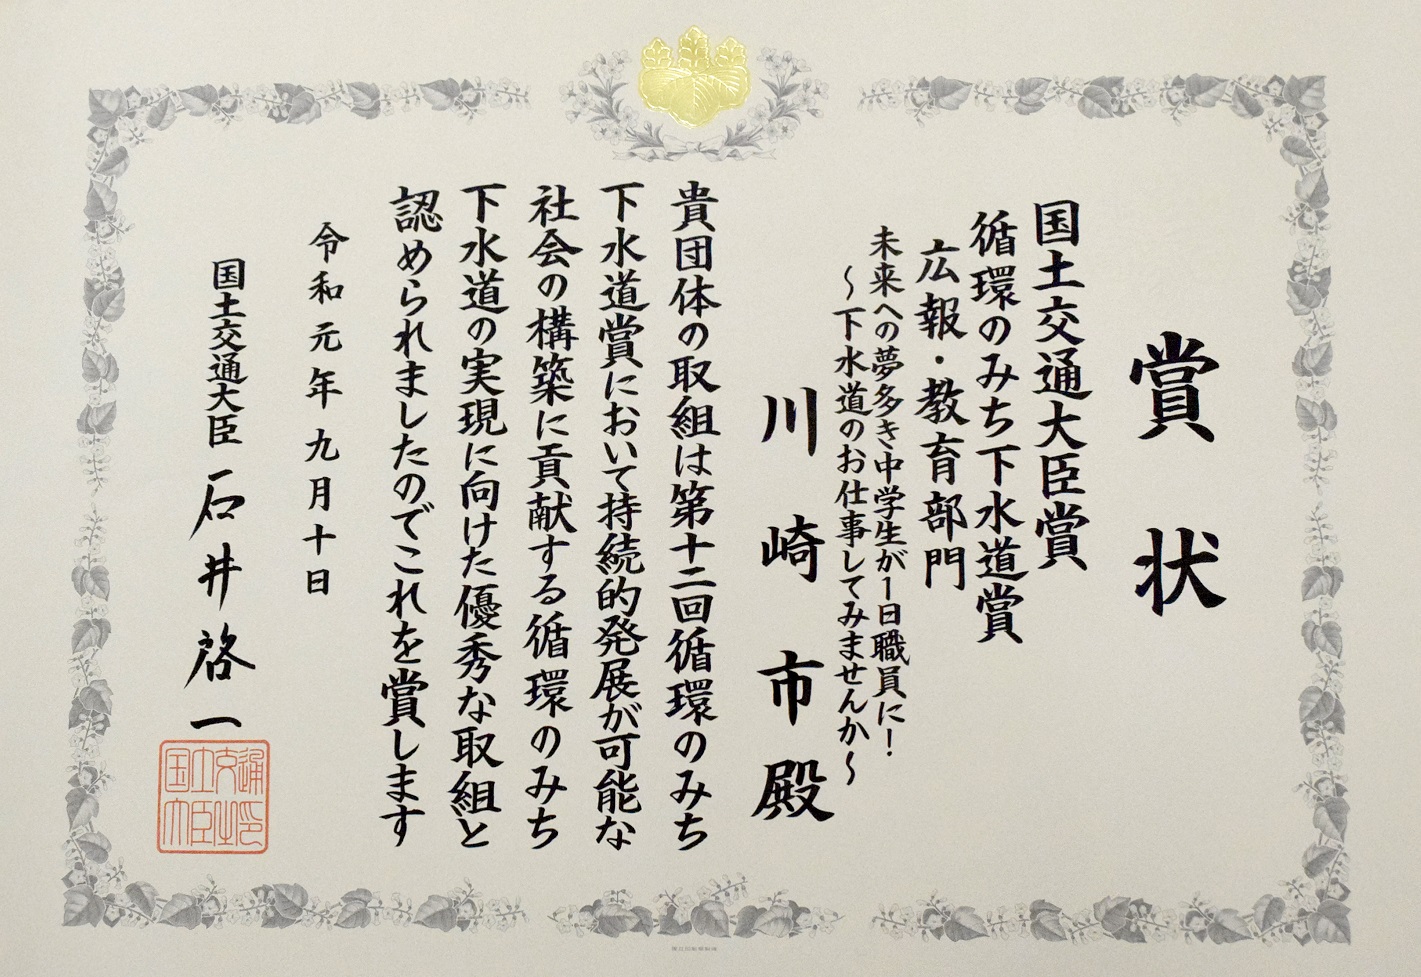 賞状
国土交通大臣賞
循環のみち下水道賞
広報・教育部門
未来への夢多き中学生が1日職員に!
～下水道のお仕事してみませんか～
川崎市殿
貴団体の取組は第十二回循環のみち
下水道賞において持続的発展が可能な
社会の構築に貢献する循環のみち
下水道の実現に向けた優秀な取組と
認められましたのでこれを賞します
令和元年九月十日
国土交通大臣 石井啓一
国土交通大臣之印